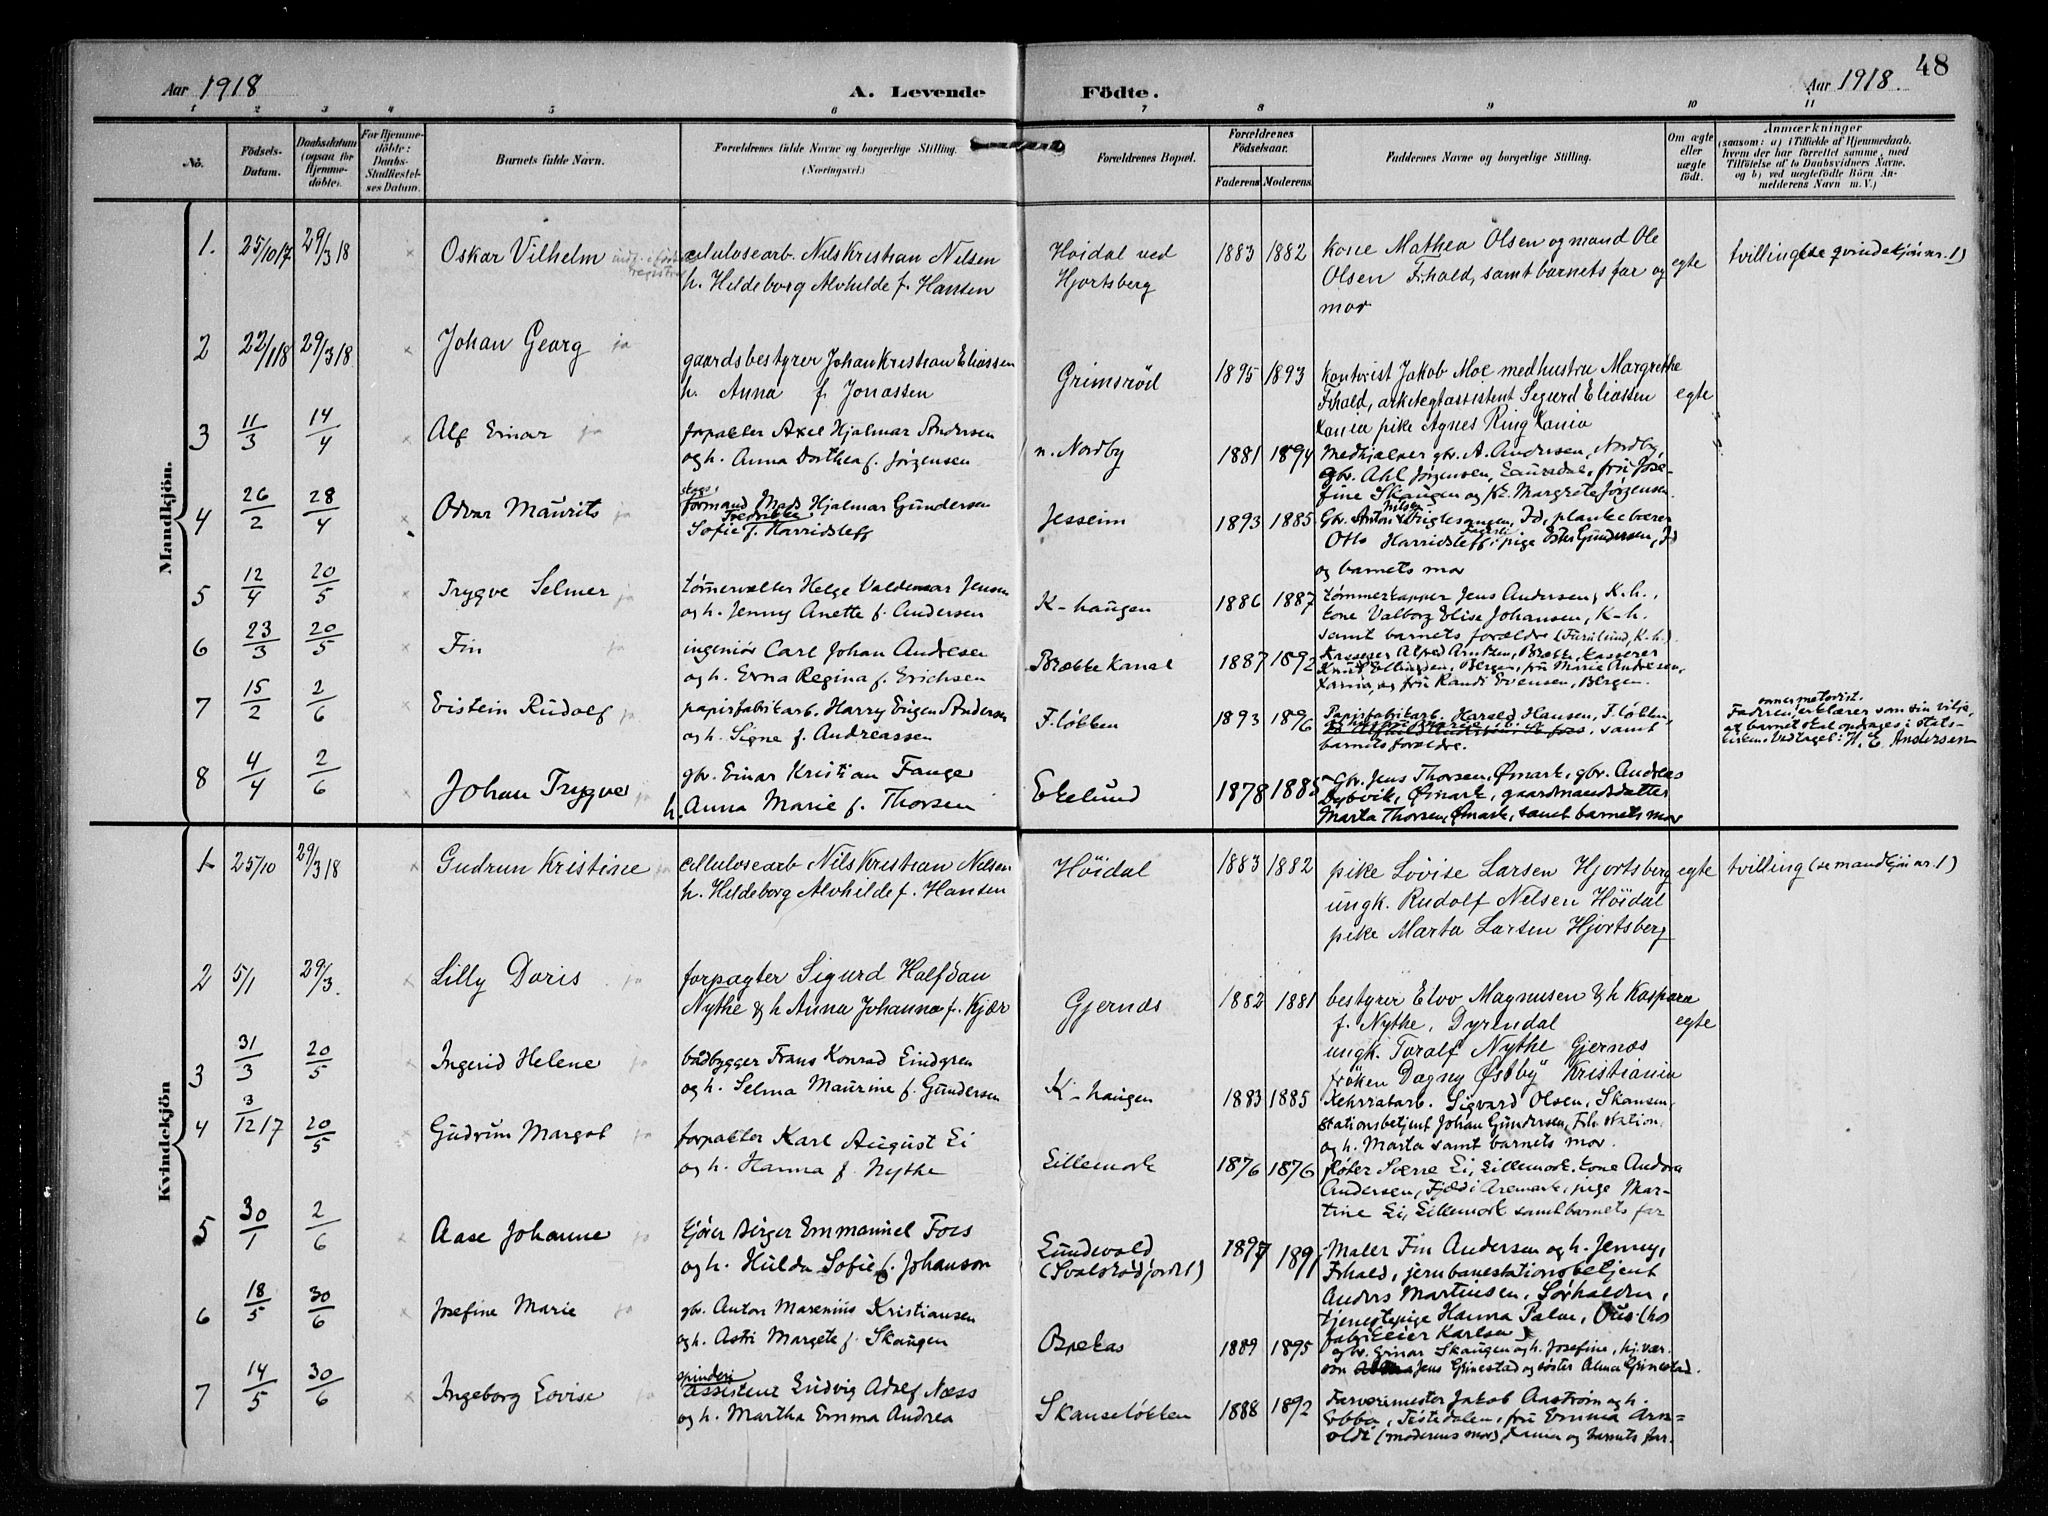 48
Aar 1918
A. Levende
Födte.
Aar 1918.
1 2 3 4 5 6 7 8 9 10 11
No.
Födsels-
Datum.
Daabsdatum
(ogsaa for
Hjemme-
döbte).
For Hjemme-
döbte:
Daabs-
Stadfæstel-
ses Datum.
Barnets fulde Navn.
Forældrenes fulde Navne og borgerlige Stilling.
(Næringsvei.)
Forældrenes Bopæl.
Forældrenes
Födselsaar.
Faderens Moderens
Faddernes Navne og borgerlige Stilling.
Om ægte
eller
uægte
födt.
Anmærkninger
(saasom: a) i Tilfælde af Hjemmedaab.
hvem der har forrettet samme, med
Tilföielse af to Daabsvidners Navne.
og b) ved uægtefödte Börn An-
melderens Navn m. V.)
Mandkjön.
1. 25/10 17 29/3 18 Oskar Vilhelm
celulosearb. Nils Kristian Nilsen
h. Hildeborg Alvhilde f. Hansen
Höidal ved
Hjortsberg
1883 1882
kone Mathea Olsen og mand Ole
Olsen Frhald, samt barnets far og
mor
egte
tvilling (se qvindekjön nr. 1)
2 22/1 18 29/3 18 Johan Georg ja
gaardsbestyrer Johan Kristian Eliassen
h. Anna f. Jonassen
Grimsröd
1895 1893
kontorist Jakob Moe med hustru Margrethe
Frhald, arkitegtassistent Sigurd Eliassen
Kania pike Agnes Ring Kania
egte
3 11/3 14/4 Alf Einar ja
forpakter Axel Hjalmar Andersen
og h. Anna Dorthea f. Jørgensen
n. Nordby
1881 1894
Medhjælper gbr. A. Andersen, Nordby,
gbr. Ahl Jørgensen, Laursdal, fru Jose-
fine Skaugen og Margrete Jørgensen
4 26/2 28/4 Odvar Maurits ja
formand Mads Hjalmar Gundersen
Fredrikke
Sofie f. Harridsleff
Jesseim
1893 1885
Nilsen
Gbr. Anton Id, plankebærer
Otto Harridsleff, pige Ester Gundersen, Id
og barnets mor
5 12/4 20/5 Trygve Selmer ja
tømmervalter Helge Valdemar Jensen
og h. Jenny Anette f. Andersen
K-haugen
1886 1887
tømmertapper Jens Andersen, K.h.,
kone Valborg Elise Johansen, K-h.
samt barnets forældre (Furulund, K-h.)
6 23/3 20/5 Fin ja
ingeniør Carl Johan Andresen
og h. Erna Regina f. Erichsen
Brække Kanal
1887 1892
Kasserer Alfred Brække, kasserer
Knut Bergen, fru Marie Andresen,
Kania, og fru Randi Evensen, Bergen.
7 15/2 2/6 Eistein Rudolf ja
papirfabrikarb. Harry Eugen Andersen
og h. Signe f. Andreassen
F. løkken
1893 1896
Papirfabrikarb. Harald Hansen, F. løkken,
samt
barnets forældre.
metodist.
Fadren, erklærer som sin vilje,
at barnet skal opdrages i stats-
kirken. Vedtaget: H. E. Andersen
8 4/4 2/6 Johan Trygve ja
gbr. Einar Kristian Fange
h. Anna Marie f. Thorsen
Ekelund
1878 1885
Gbr. Jens Thorsen, Ømark, gbr. Andreas
Dybvik, Ømark, gaardmandsdatter
Marta Thorsen, Ømark, samt barnets mor
Kvindekjön
1 25/10 29/3 18 Gudrun Kristine ja
Cellulosearb Nils Kristian Nilsen
h. Hildeborg Alvhilde f. Hansen
Höidal
1883 1882
pike Lovise Larsen Hjortsberg
ungk. Rudolf Nilsen Höidal
pike Marta Larsen Hjortsberg
egte
tvilling (se mandkjön nr. 1)
2 5/1 29/3. Lilly Doris ja
forpagter Sigurd Halfdan
Nythe & h Anna Johanna f. Kjær
Gjernæs
1882 1881
bestyrer Magnusen & h Kaspara
f. Nythe, Dyrendal
ungk. Toralf Nythe Gjernæs
fröken Dagny Østby Kristiania
egte
3 31/3 20/5 Ingerid Helene ja
baadbygger Frans Konrad Lindgren
og h. Selma Maurine f. Gundersen
K-haugen
1883 1885
Kehrratarb. Sigvard Olsen, Skansen,
stationsbetjent Johan Gundersen, Frh. station
og h. Marta samt barnets mor.
4 3/12 17 20/5 Gudrun Margot ja
forpakter Karl August Ei
og h. Hanna f. Nythe
Lillemork
1876 1876
fløter Sverre Ei, Lillemork, kone Andora
Andersen, Fjeld i Aremark, pige Mar-
tine Ei, Lillemork samt barnets far
5 30/1 2/6 Aase Johanne ja
kjører Birger Emmanuel Foss
og h. Hulda Sofie f. Johanson
Lundevold
(Svalerødfjordet)
1897 1891
Maler Fin Andersen og h. Jenny,
Frhald, jernbanestationsbetjent
Anders Martinsen, Sørhalden,
tjenestepige Hanna Palm, Ous (hos
fabrikeier Karlsen)
6 18/5 30/6 Josefine Marie ja
gbr. Anton Marenius Kristiansen
og h. Astri Margete f. Skaugen
Ospekas
1889 1895
gbr. Einar Skaugen og h. Josefine, hj.vær.
søn Jens Ginestad og søster Alma Ginestad.
7 14/5 30/6 Ingeborg Lovise ja
spinderi
assistent Ludvig Adolf Næss
og h. Martha Emma Andrea
Skanseløkken
1888 1892
Farverimester Jakob Aastrøm og h.
Ebba, Tistedalen, fru Emma Arn-
oldi (moderens mor) Kania og barnets far.